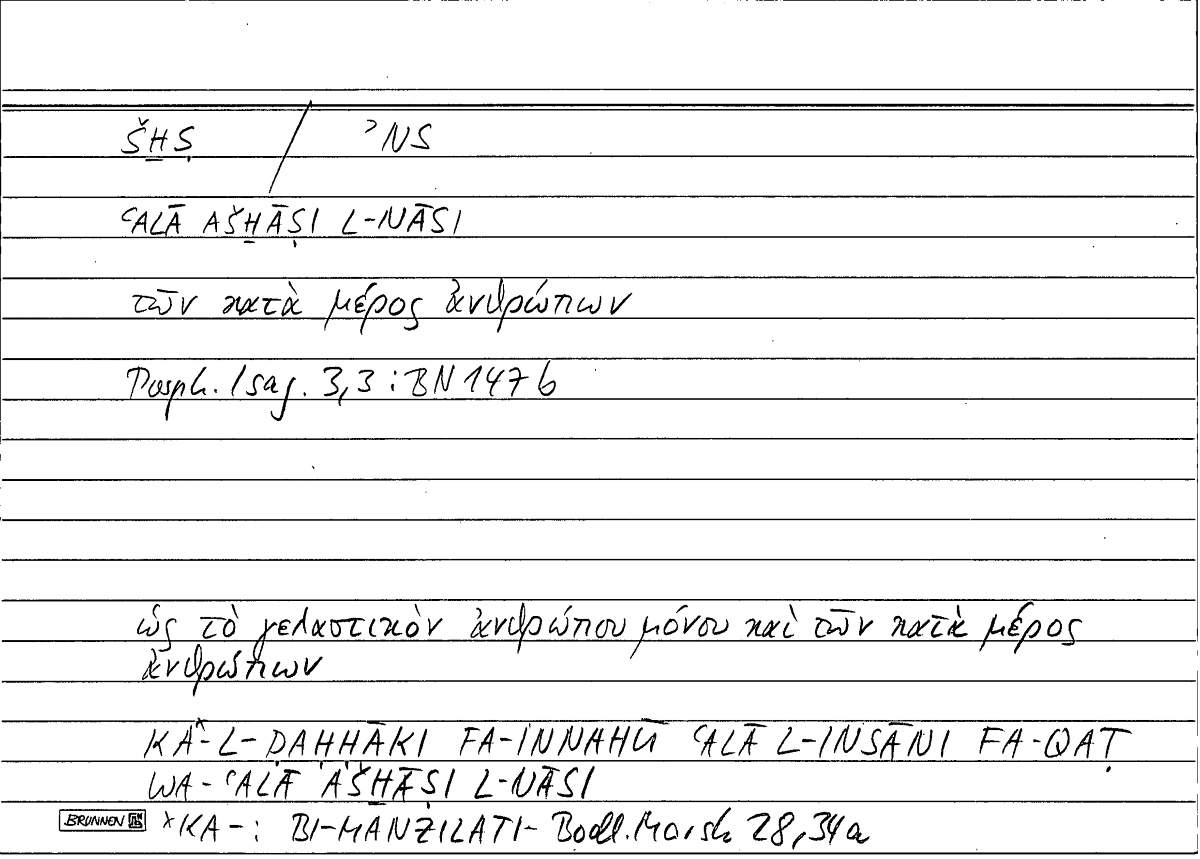 ŠḪṢ / ʾNS
ʿALĀ AŠḪĀṢI L-NĀSI
τῶν κατὰ μέρος ἀνθρώπων
Porph. Isag. 3,3 : BN 147 b
ὡς τὸ γελαστικὸν ἀνθρώπου μόνου καὶ τῶν κατὰ μέρος
ἀνθρώπων
KAˣ-L-ḌAḤḤĀKI FA-INNAHŪ ʿALĀ L-INSĀNI FA-QAṬ
WA-ʿALĀ AŠḪĀṢI L-NĀSI
BRUNNEN ˣKA-: BI-MANZILATI- Bodl. Marsh 28,34a